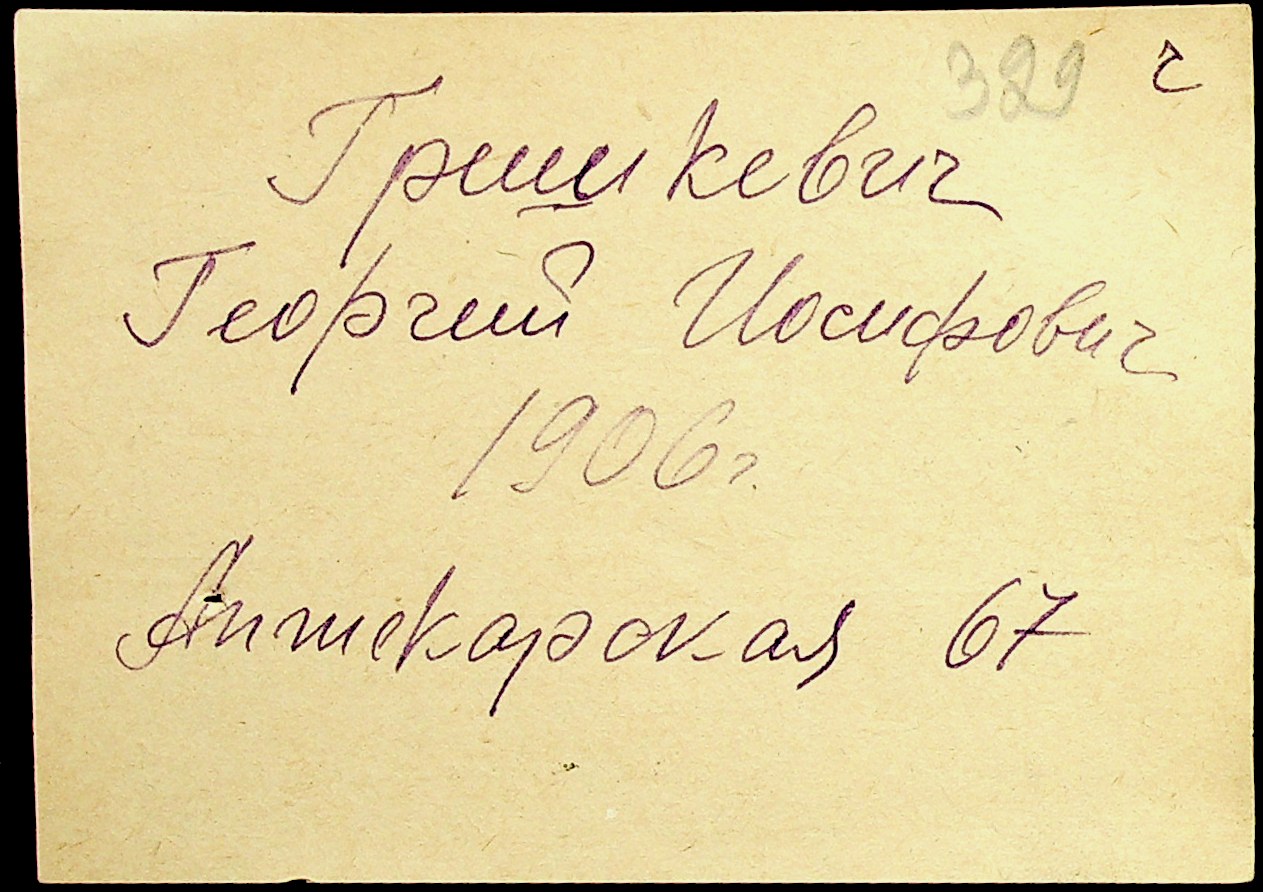 329 г
Гришкевич
Георгий Иосифович
1906г.
Аптекарская 67